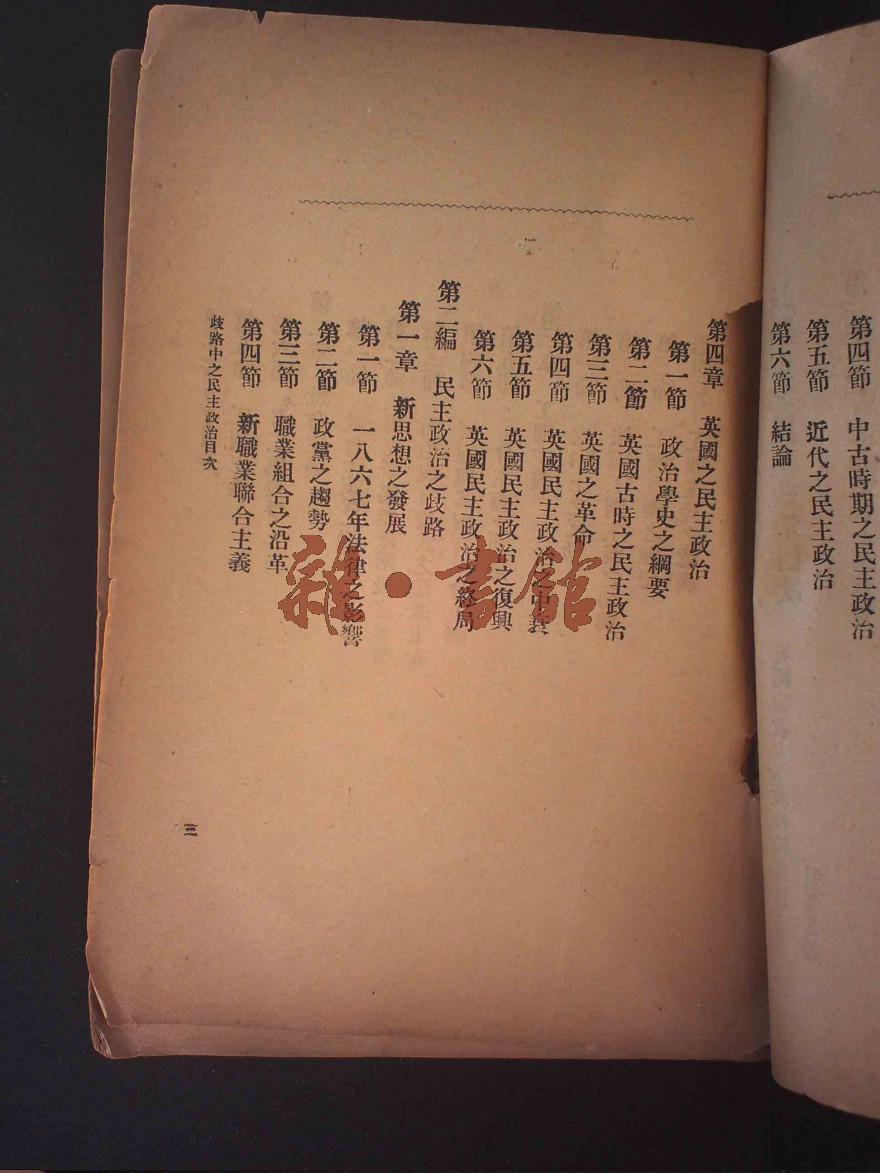 第四節　中古時期之民主政治
第五節　近代之民主政治
第六節　結論
第四章　英國之民主政治
第一節　政治學史之綱要
第二節　英國古時之民主政治
第三節　英國之革命
第四節　英國民主政治之中衰
第五節　英國民主政治之復興
第六節　英國民主政治之終局
第二編　民主政治之歧路
第一章　新思想之發展
第一節　一八六七年法律之影響
第二節　政黨之趨勢
第三節　職業組合之沿革
第四節　新職業聯合主義
歧路中之民主政治目次
三
雜·書館